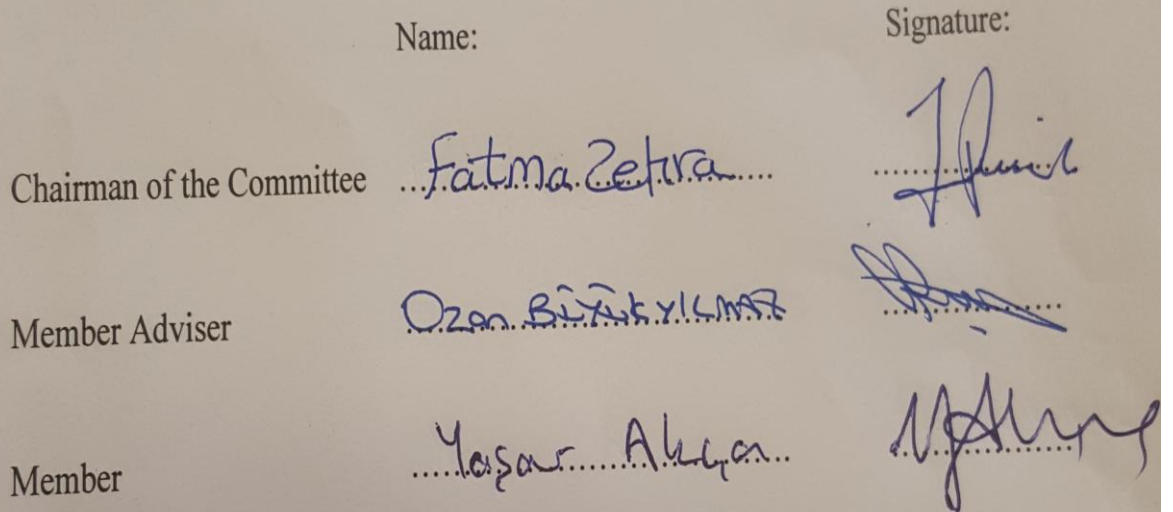 Name: Signature:
Chairman of the Committee Fatma Zehra
Member Adviser Ozan BÜYÜKYILMAZ
Member Yaşar Akça